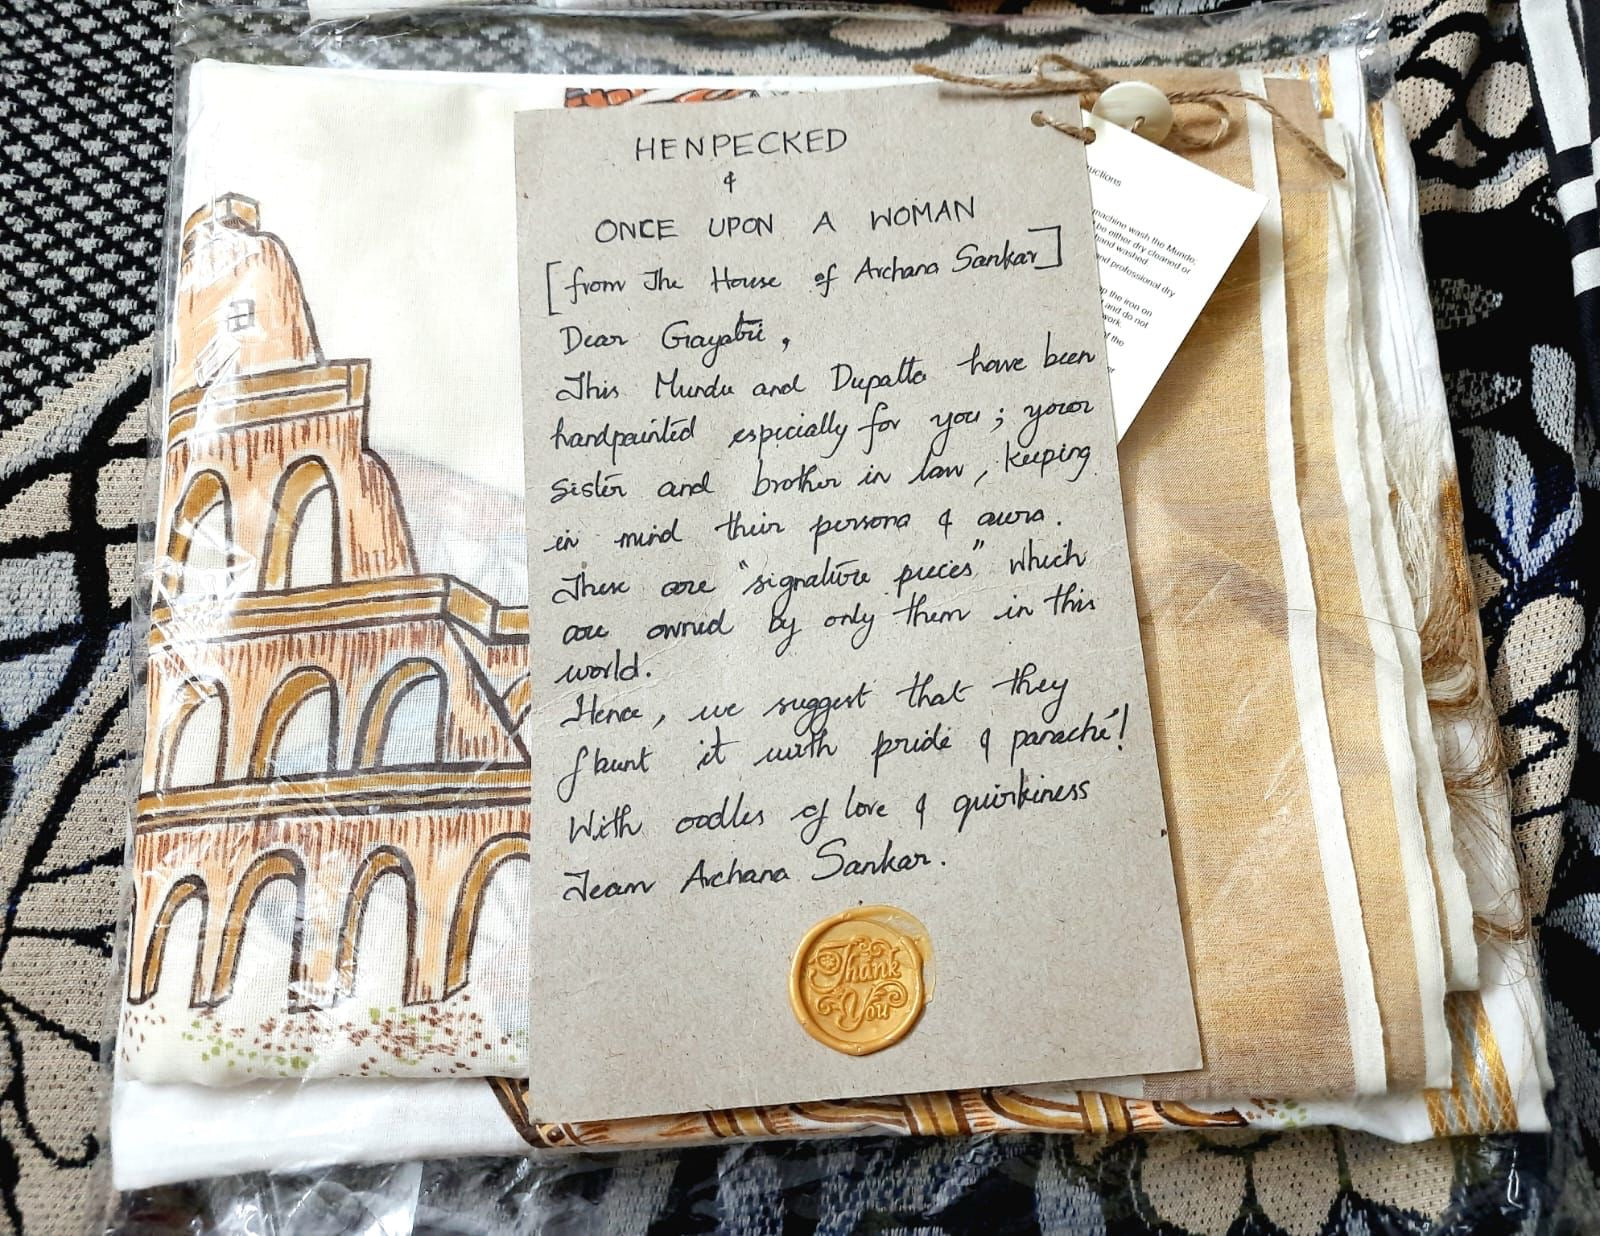 HENPECKED
&
ONCE UPON A WOMAN
[from The House of Archana Sankar]
Dear Gayatri,
This Mundu and Dupatta have been
handpainted especially for you; your
sister and brother in law, keeping
in mind their persona & aura.
These are "signature pieces" which
are owned by only them in this
world.
Hence, we suggest that they
flaunt it with pride & panache!
With oodles of love & quirkiness
Team Archana Sankar.
Thank
You
machine wash the Mundu,
be either dry cleaned or
hand washed.
and professional dry
the iron on
and do not
of the